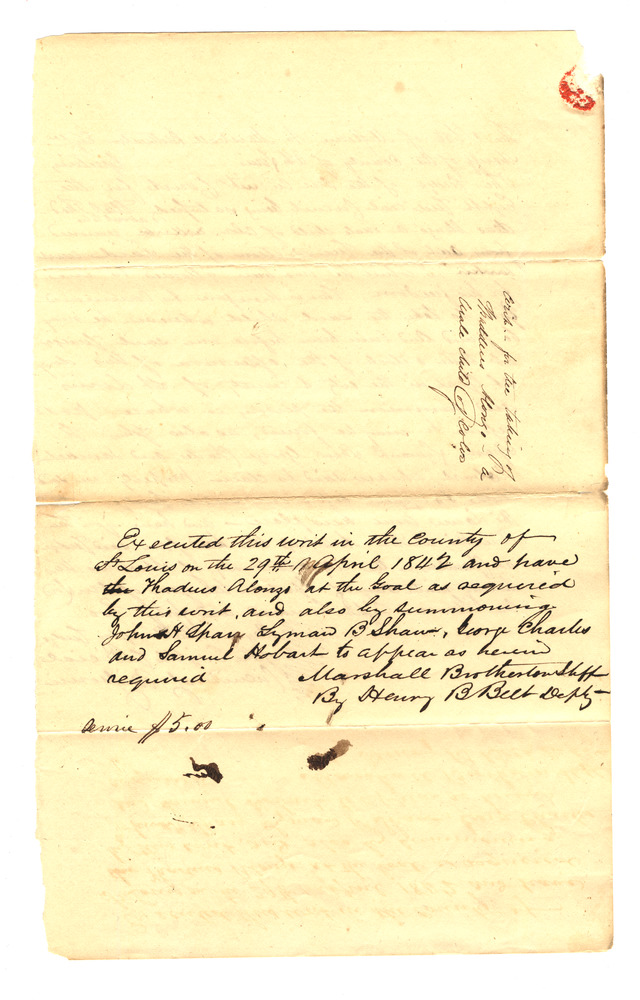 for the taking of
Thaddeus Alonzo - a
male child of Color
Executed this writ in the County of
St Louis on the 29th April 1842 and have
the Thadeus Alonzo at the Goal as required
by this writ, and also by summoning
John H Shaw Lyman B Shaw, George Charles
and Samuel Hobart to appear as herein
required Marshall Brotherton Shff
By Henry B Belt Depty
service $5.00